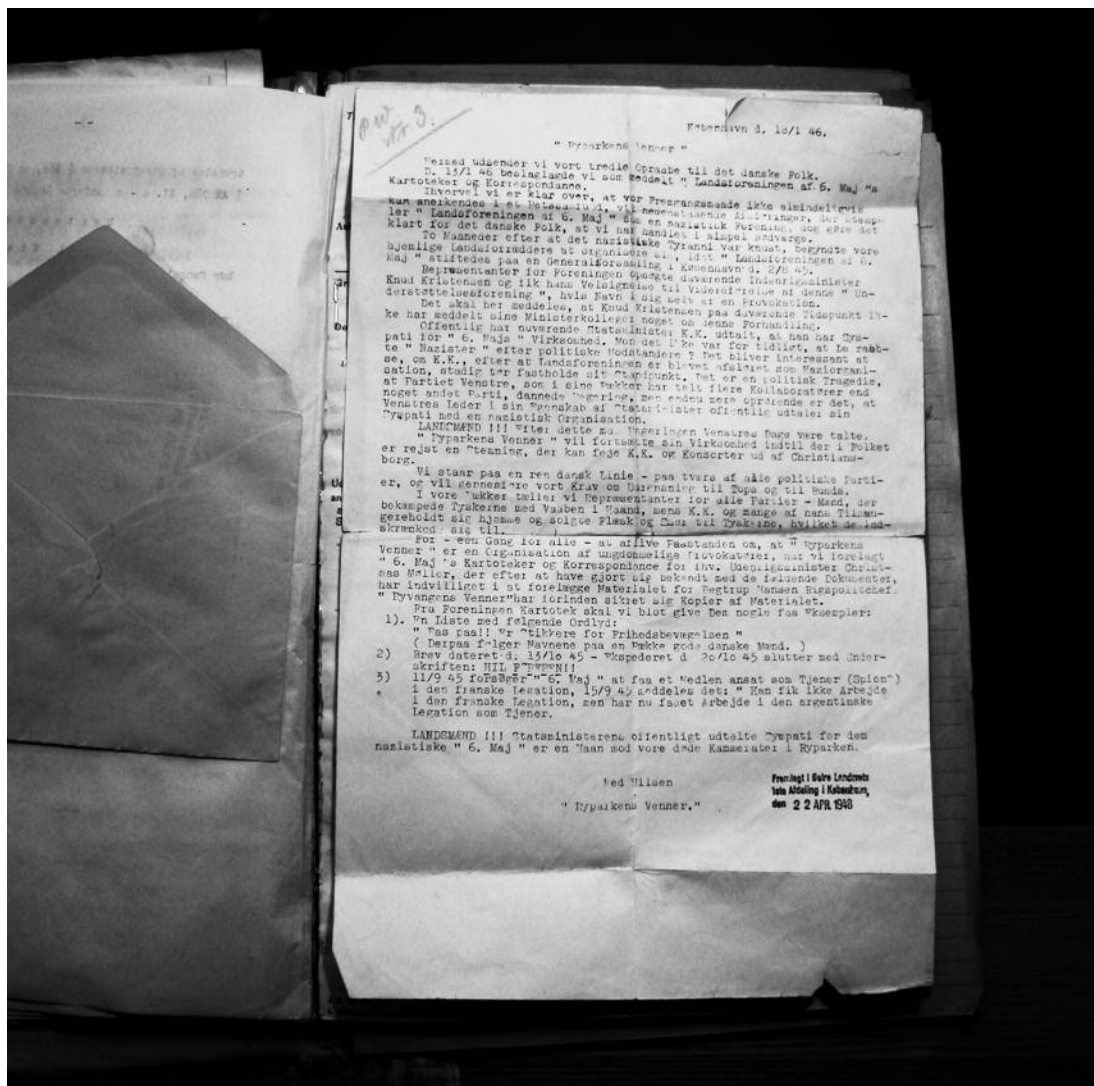 Nr. 3.
København d. 18/1 46.
" Ryparkens Venner "
Hermed udsender vi vort tredie Opraab til det danske Folk.
D. 13/1 46 beslaglagde vi som meddelt " Landsforeningen af 6. Maj "s
Kartoteker og Korrespondance.
Ihvorvel vi er klar over, at vor Fremgangsmaade ikke almindeligvis
kan anerkendes i et Retssamfund, vil nedenstaaende Afsløringer, der stemp-
ler " Landsforeningen af 6. Maj " som en nazistisk Forening, dog gøre det
klart for det danske Folk, at vi har handlet i simpel Nødværge.
To Maaneder efter at det nazistiske Tyranni var knust, begyndte vore
hjemlige Landsforræddere at organisere sig, idet " Landsforeningen af 6.
Maj " stiftedes paa en Generalforsamling i København d. 2/8 45.
Repræsentanter for Foreningen opsøgte daværende Indenrigsminister
Knud Kristensen og fik hans Velsignelse til Videreførelse af denne " Un-
derstøttelsesforening ", hvis Navn i sig selv er en Provokation.
Det skal her meddeles, at Knud Kristensen paa daværende Tidspunkt ik-
ke har meddelt sine Ministerkolleger noget om denne Forhandling.
Offentlig har nuværende Statsminister K.K. udtalt, at han har Sym-
pati for " 6. Majs " Virksomhed. Mon det ikke var for tidligt, at De raab-
te " Nazister " efter politiske Modstandere ? Det bliver interessant at
se, om K.K., efter at Landsforeningen er blevet afsløret som Naziorgani-
sation, stadig tør fastholde sit Standpunkt. Det er en politisk Tragedie,
at Partiet Venstre, som i sine Rækker har talt flere Kollaboratører end
noget andet Parti, dannede Regering, men endnu mere oprørende er det, at
Venstres Leder i sin Egenskab af Statsminister offentlig udtaler sin
Sympati med en nazistisk Organisation.
LANDSMÆND !!! Efter dette maa Regeringen Venstres Dage være talte.
" Ryparkens Venner " vil fortsætte sin Virksomhed indtil der i Folket
er rejst en Stemning, der kan feje K.K. og Konsorter ud af Christians-
borg.
Vi staar paa en ren dansk Linie - paa tværs af alle politiske Parti-
er, og vil gennemføre vort Krav om Udrensning til Tops og til Bunds.
I vore Rækker tæller vi Repræsentanter for alle Partier - Mænd, der
bekæmpede Tyskerne med Vaaben i Haand, mens K.K. og mange af hans Tilhæn-
gere holdt sig hjemme og solgte Flæsk og Smør til Tyskerne, hvilket de ind-
skrænkede sig til.
For - een Gang for alle - at aflive Paastanden om, at " Ryparkens
Venner " er en Organisation af ungdommelige Provokatører, har vi forelagt
" 6. Maj "s Kartoteker og Korrespondance for fhv. Udenrigsminister Christ-
mas Møller, der efter at have gjort sig bekendt med de fældende Dokumenter,
har indvilliget i at forelægge Materialet for Begtrup Hansen Rigspolitichef.
" Ryvangens Venner"har forinden sikret sig Kopier af Materialet.
Fra Foreningen Kartotek skal vi blot give Dem nogle faa Eksempler:
1). En Liste med følgende Ordlyd:
" Pas paa!! Er Stikkere for Frihedsbevægelsen "
( Derpaa følger Navnene paa en Række gode danske Mænd. )
2) Brev dateret d. 13/10 45 - Ekspederet d 20/10 45 slutter med Under-
skriften: HIL FØREREN!!
3) 11/9 45 forsøger " 6. Maj " at faa et Medlem ansat som Tjener (Spion?)
i den franske Legation, 15/9 45 meddeles det: " Han fik ikke Arbejde
i den franske Legation, men har nu faaet Arbejde i den argentinske
Legation som Tjener.
LANDSMÆND !!! Statsministerens offentligt udtalte Sympati for den
nazistiske " 6. Maj " er en Haan mod vore døde Kammerater i Ryparken.
Med Hilsen
" Ryparkens Venner."
Fremlagt i Østre Landsrets
1ste Afdeling i København,
den 22 APR. 1948